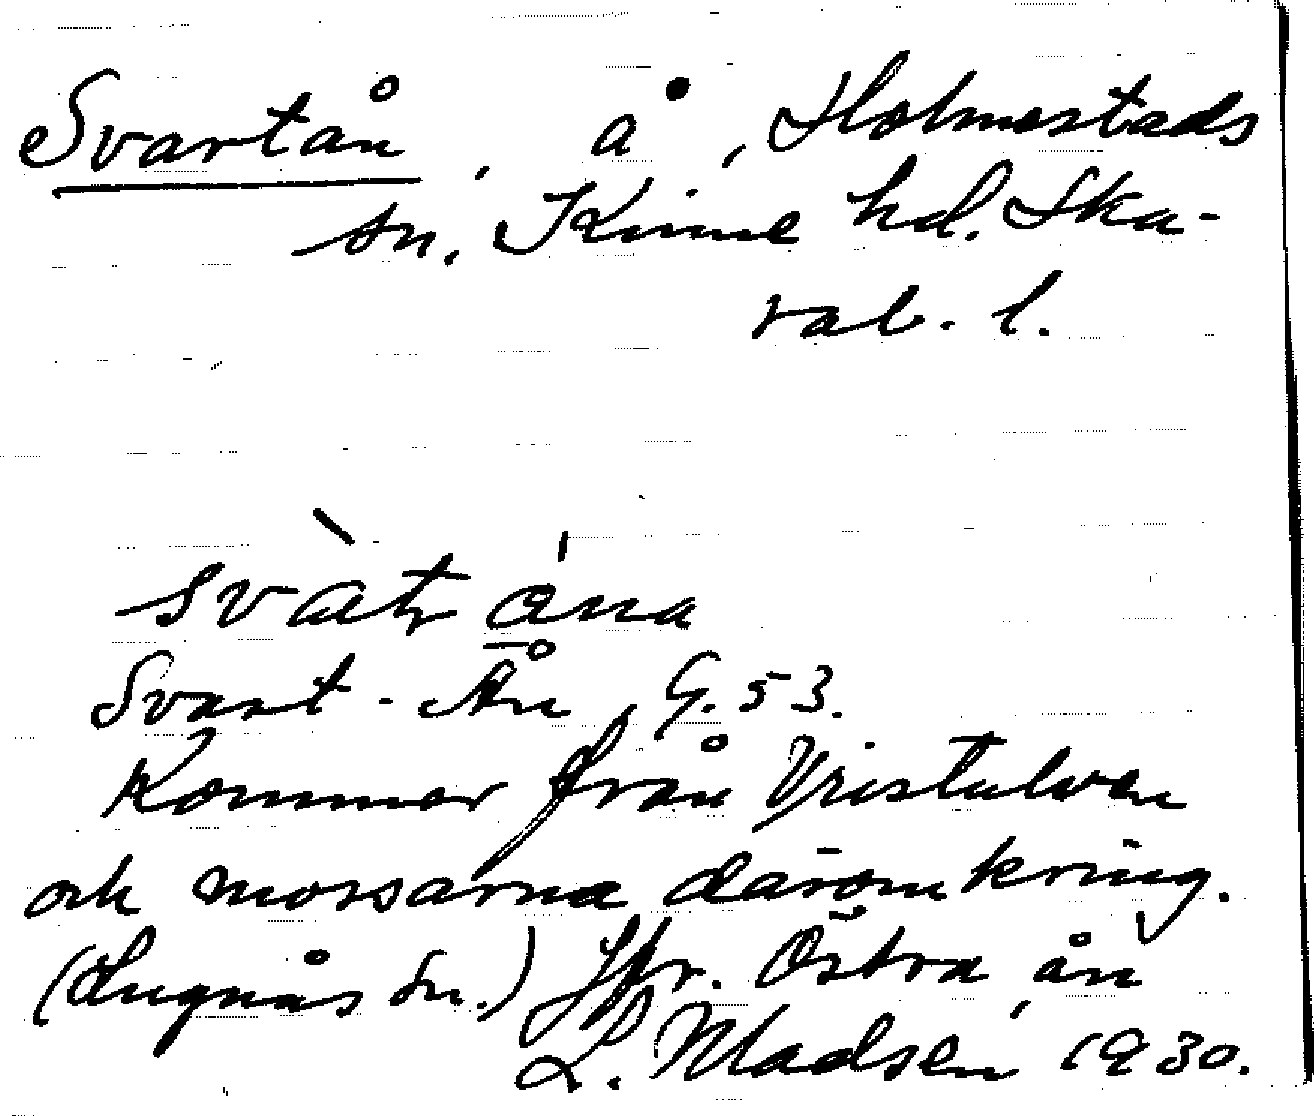 Svartån, å, Holmestads
sn. Kinne hd. Ska-
rab. l.
Svart-Ån G. 53.
Kommer från Vristulven
och mossarna däromkring.
(Lugnås sn.) Jfr. Östra ån
L. Madsen 1930.